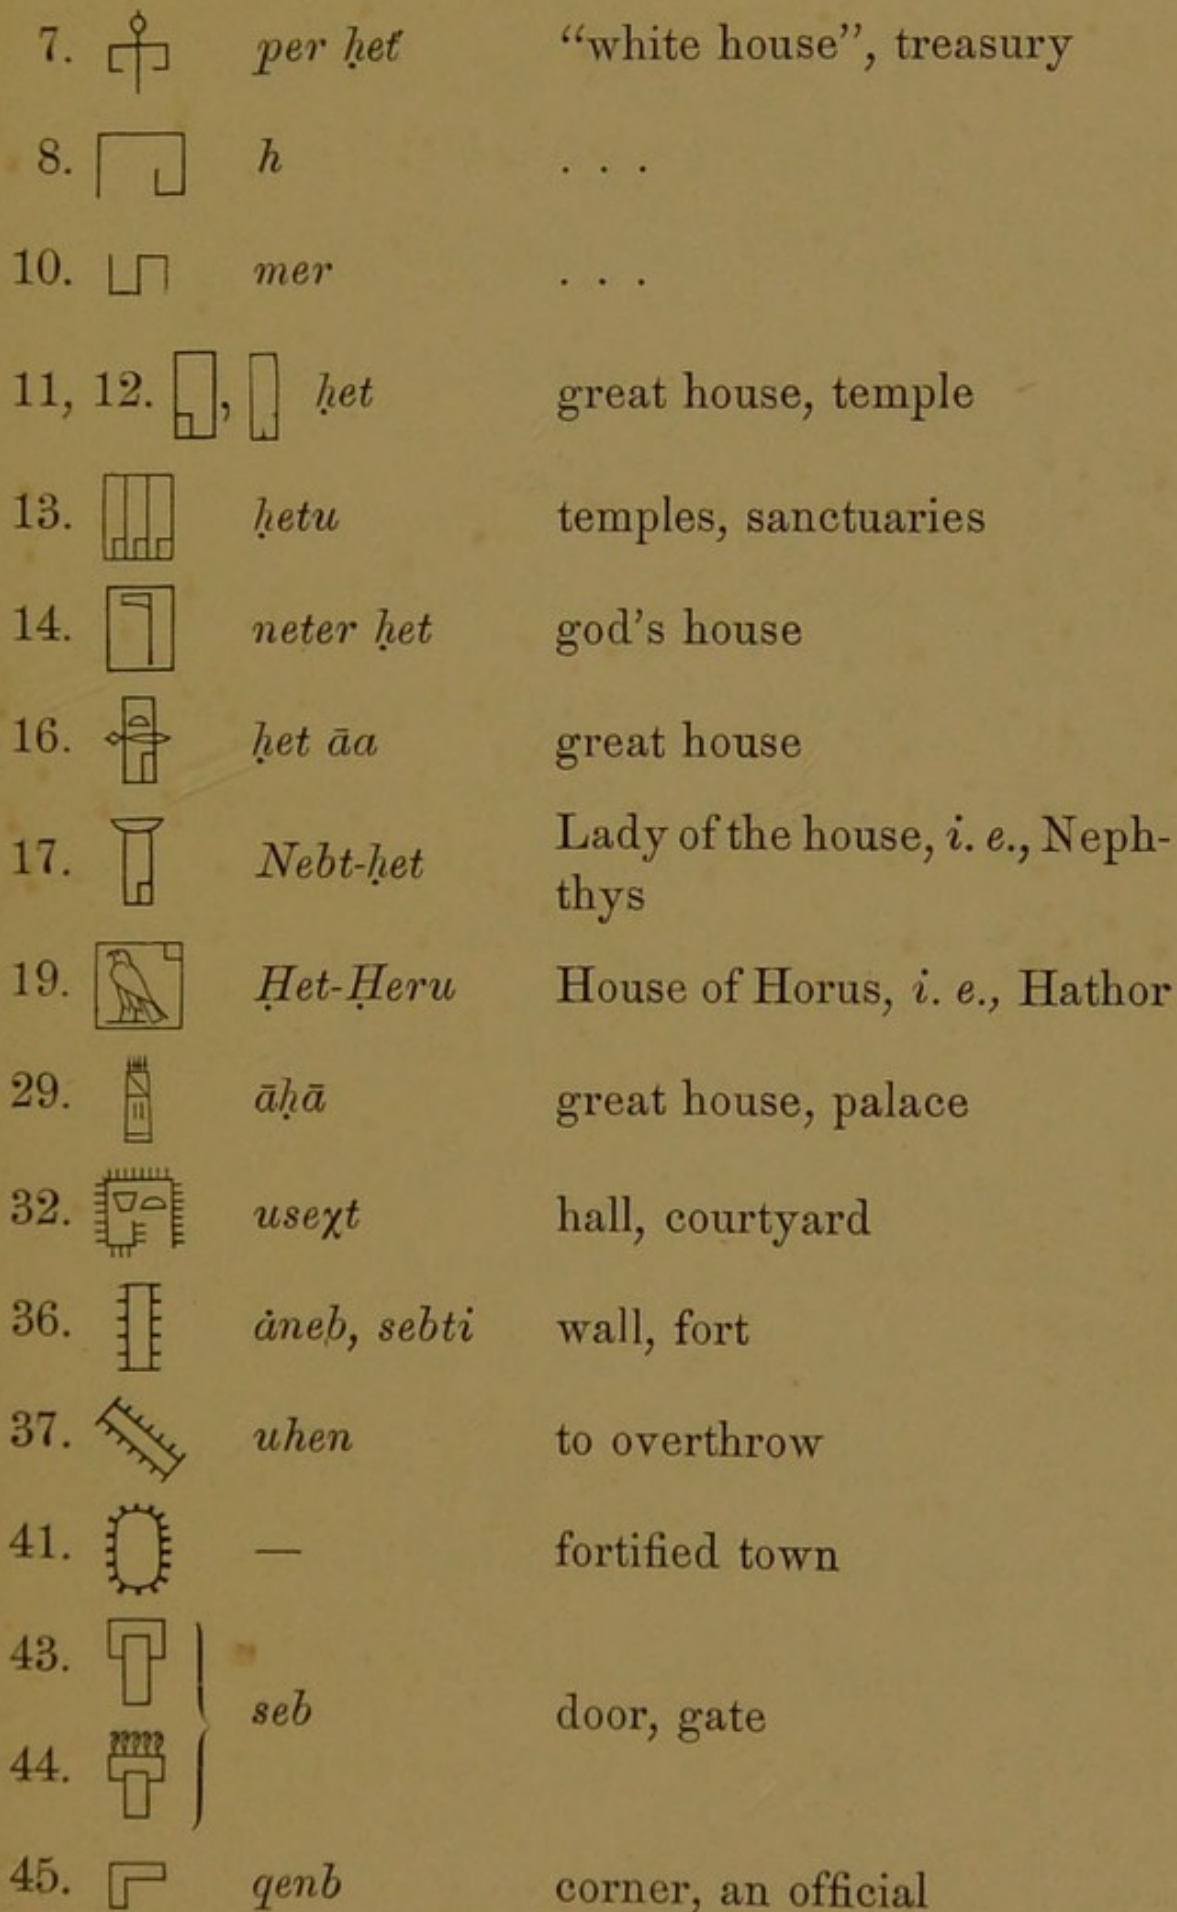 7. 𓉑 per ḥet́ “white house”, treasury
8. 𓉔 h . . .
10. 𓉕 mer . . .
11, 12. 𓉗, 𓉘 ḥet great house, temple
13. ḥetu temples, sanctuaries
14. neter ḥet god’s house
16. ḥet āa great house
17. 𓉠 Nebt-ḥet Lady of the house, i. e., Neph-
thys
19. 𓉡 Ḥet-Ḥeru House of Horus, i. e., Hathor
29. 𓉥 āḥā great house, palace
32. useχt hall, courtyard
36. 𓊅 ȧneb, sebti wall, fort
37. 𓊆 uhen to overthrow
41. — fortified town
43.
seb door, gate
44.
45. 𓘭 qenb corner, an official